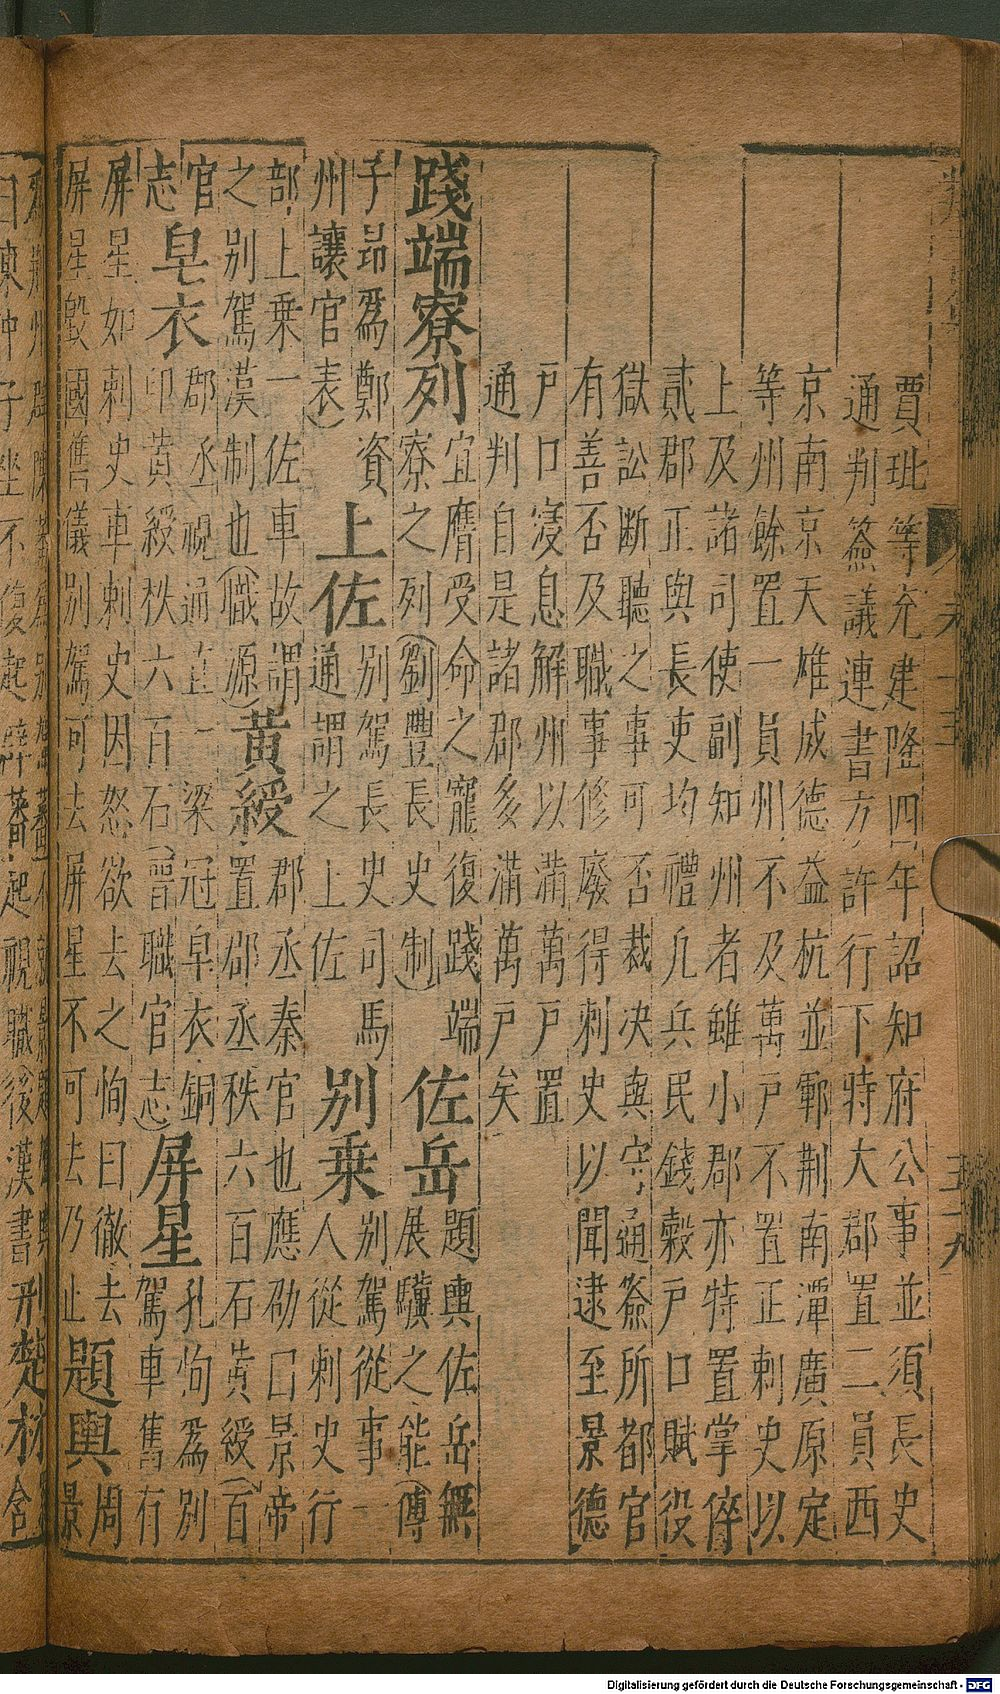 賈玭等充建隆四年詔知府公事並須長史
通判簽議連書方許行下特大郡置二員西
京南京天雄成德益杭並鄆荆南潭廣原定
等州餘置一員州不及萬戸不置正刺史以
上及諸司使副知州者雖小郡亦特置掌倅
貳郡正與長吏均禮凡兵民錢糓戸口賦役
獄訟断聽之事可否裁决與守通簽所都官
有善否及職事修廢得刺史以聞逮至景德
戸口寖息解州以滿萬戸置
通判自是諸郡多滿萬戸矣
踐端寮列 宜膺受命之寵復踐端
寮之列(劉豐長史制) 佐岳 題輿佐岳無
展驥之能(傅
子昻爲鄭資
州讓官表) 上佐 別駕長史司馬
通謂之上佐 別乗 别駕從事一
人從刺史行
部上乗一佐車故謂
之别駕漢制也(職源) 黄綬 郡丞秦官也應劭曰景帝
置郡丞秩六百石黄綬(百
官
志 皂衣 郡丞視通直一梁冠皁衣銅
印黄綬秩六百石(晉職官志) 屏星 孔恂爲别
駕車舊有
屏星如刺史車刺史因怒欲去之恂曰徹去
屏星毀國舊儀别駕可去屏星不可去乃止 題輿 周
景
後漢書
楚材
Digitalisierung gefördert durch die Deutsche Forschungsgemeinschaft - DFG